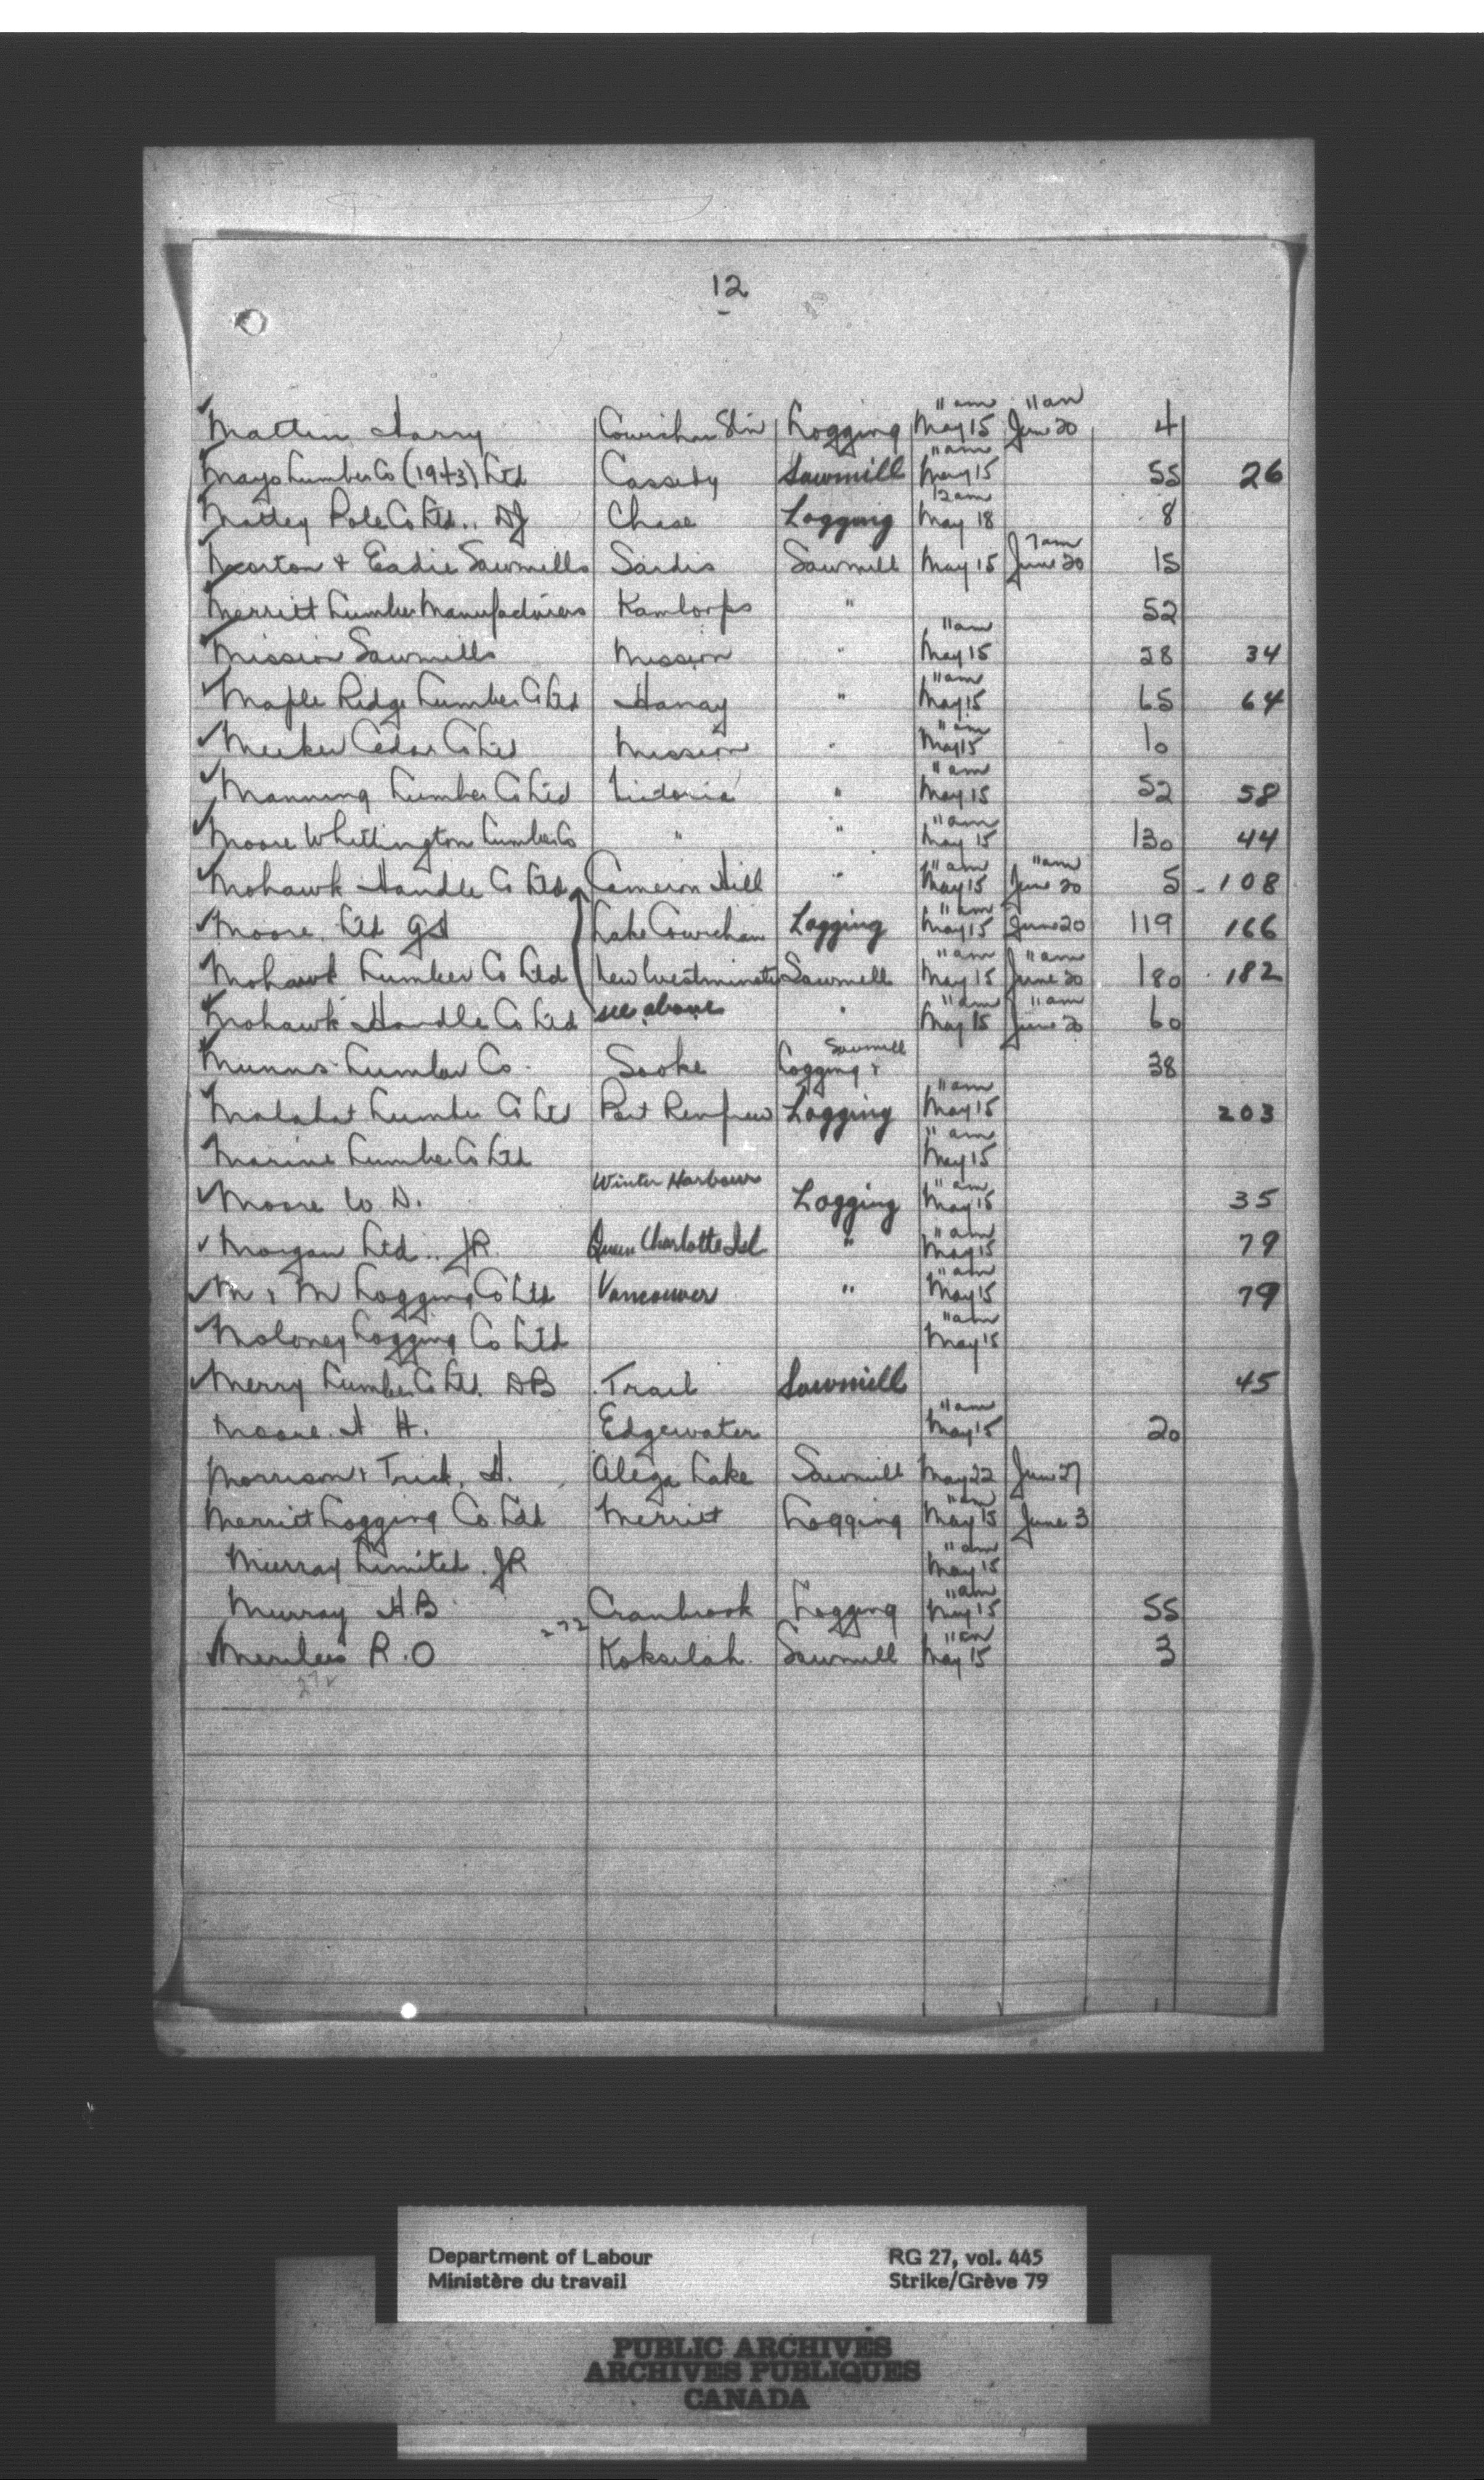 12
Mattin, Harry Cowichan Stn Logging 11 am May 15 11 am June 20 4
Mayo Lumber Co (1943) Ltd Cassidy Sawmill 11 am May 15 55 26
Matley Pole Co Ltd., DJ Chase Logging 12 am May 18 8
Morton & Eadie Sawmills Sardis Sawmill May 15 7 am June 20 15
Merritt Lumber Manufacturers Kamloops " 52
Mission Sawmills Mission " 11 am May 15 28 34
Maple Ridge Lumber Co Ltd Haney " 11 am May 15 65 64
Meeker Cedar Co Ltd Mission " 11 am May 15 10
Manning Lumber Co Ltd Victoria " 11 am May 15 52 58
Moore Whittington Lumber Co " " 11 am May 15 130 44
Mohawk Handle Co Ltd Cameron Hill " 11 am May 15 11 am June 20 5 108
Moore, Ltd GS Lake Cowichan Logging 11 am May 15 June 20 119 166
Mohawk Lumber Co Ltd New Westminster Sawmill 11 am May 15 11 am June 20 180 182
Mohawk Handle Co Ltd see above " 11 am May 15 11 am June 20 60
Munns Lumber Co. Sooke Logging & Sawmill 38
Malahat Lumber Co Ltd Port Renfrew Logging 11 am May 15 203
Marine Lumber Co Ltd 11 am May 15
Moore W. D. Winter Harbour Logging 11 am May 15 35
Morgan Ltd.. JR. Queen Charlotte Isl " 11 am May 15 79
M & M Logging Co Ltd Vancouver " 11 am May 15 79
Moloney Logging Co Ltd 11 am May 15
Merry Lumber Co Ltd. DB Trail Sawmill 45
Moore. A H. Edgewater 11 am May 15 20
Morrison & Trick, H. Aleza Lake Sawmill May 22 June 27
Merritt Logging Co. Ltd Merritt Logging 11 am May 15 June 3
Murray Limited. JR 11 am May 15
Murray H.B Cranbrook Logging 11 am May 15 55
Merilees R.O 272 Koksilah. Sawmill 11 am May 15 3
272
Department of Labour RG 27, vol. 445
Ministère du travail Strike/Grève 79
PUBLIC ARCHIVES
ARCHIVES PUBLIQUES
CANADA